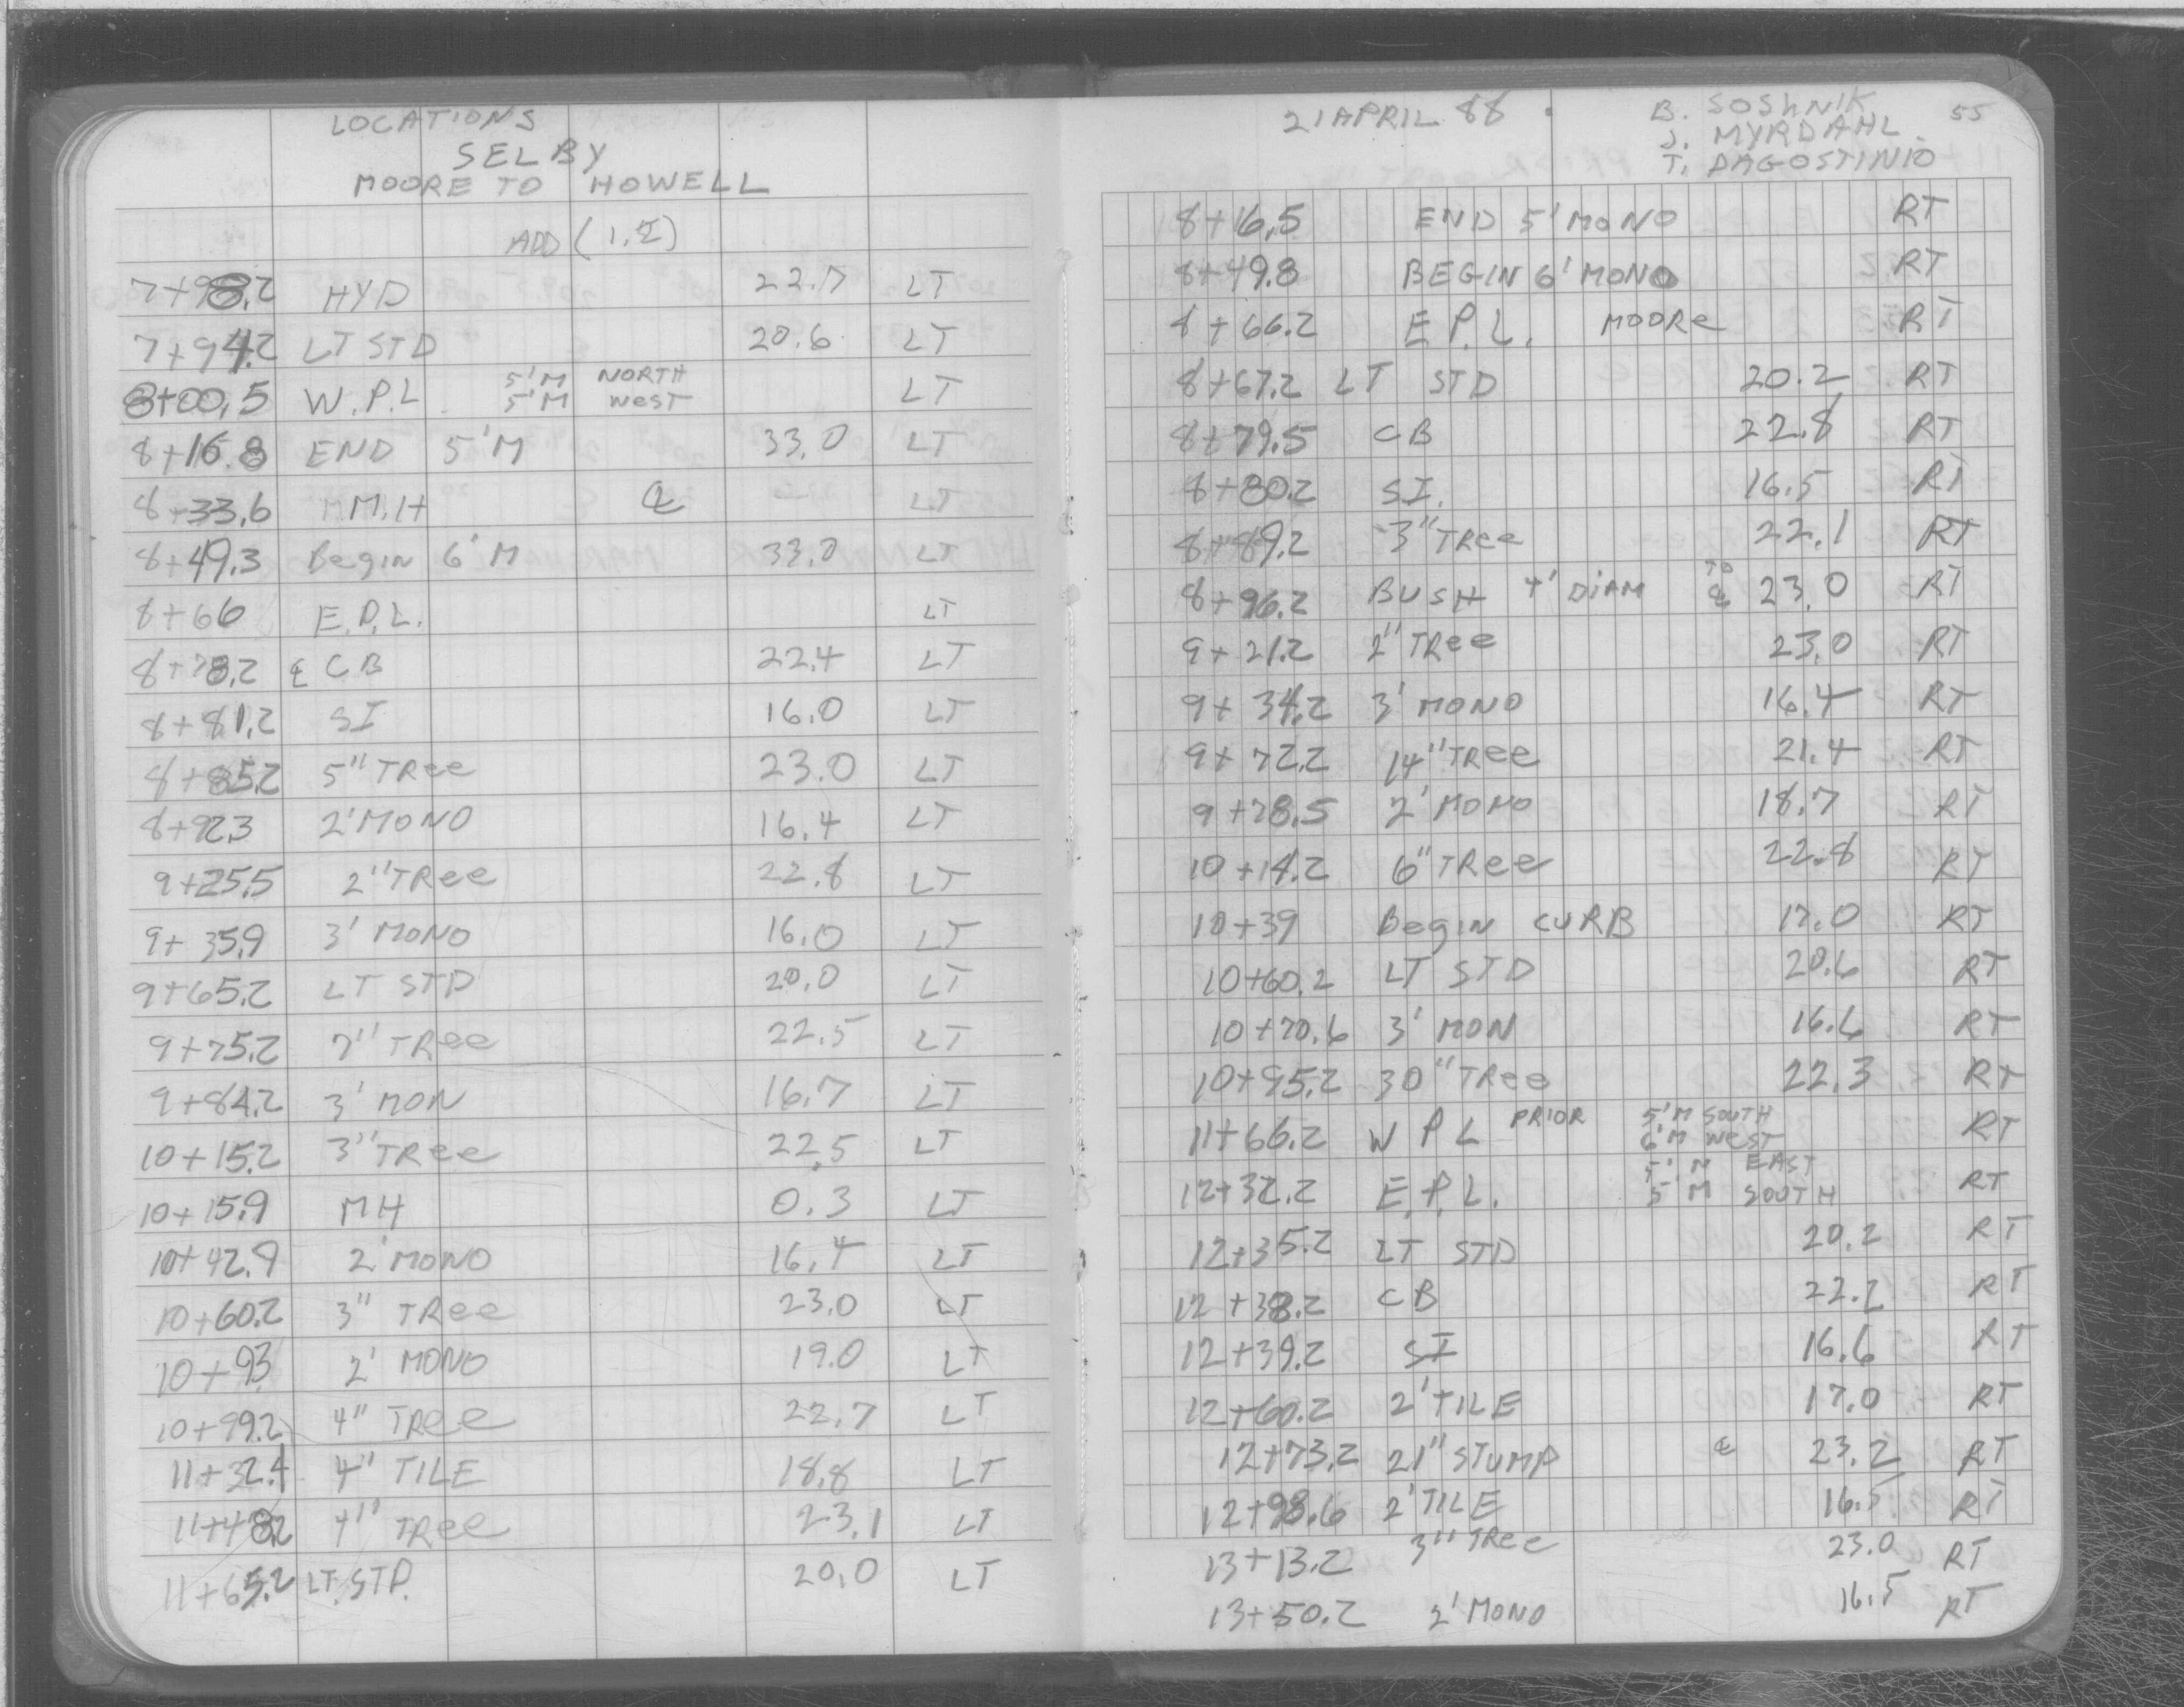 LOCATIONS
SELBY
MOORE TO HOWELL
ADD (1.2)
7+98.2 HYD 22.7 LT
7+94.2 LT STD 20.6 LT
8+00.5 W.P.L. 5'M NORTH 5'M WEST LT
8+16.8 END 5'M 33.0 LT
8+33.6 M.H ℄ LT
8+49.3 Begin 6'M 33.0 LT
8+66 E.P.L. LT
8+78.2 ℄ CB 22.4 LT
8+81.2 SI 16.0 LT
8+85.2 5" TRee 23.0 LT
8+92.3 2' MONO 16.4 LT
9+25.5 2" TRee 22.8 LT
9+35.9 3' MONO 16.0 LT
9+65.2 LT STD 20.0 LT
9+75.2 7" TRee 22.5 LT
9+84.2 3' MON 16.7 LT
10+15.2 3" TRee 22.5 LT
10+15.9 MH 0.3 LT
10+42.9 2' MONO 16.4 LT
10+60.2 3" TRee 23.0 LT
10+93 2' MONO 19.0 LT
10+99.2 4" TRee 22.7 LT
11+32.4 4" TILE 18.8 LT
11+48.2 4" TRee 23.1 LT
11+65.2 LT.STD. 20.0 LT
21 APRIL 88
B. SOSHNIK 55
J. MYRDAHL
T. DAGOSTINIO
8+16.5 END 5' MONO RT
8+49.8 BEGIN 6' MONO RT
8+66.2 E.P.L. MOORe RT
8+67.2 LT STD 20.2 RT
8+79.5 CB 22.8 RT
8+80.2 SI. 16.5 RT
8+89.2 3" TRee 22.1 RT
8+96.2 BUSH 4' DIAM TO ℄ 23.0 RT
9+21.2 2" TRee 23.0 RT
9+34.2 3' MONO 16.4 RT
9+72.2 14" TRee 21.4 RT
9+78.5 2' MONO 18.7 RT
10+14.2 6" TRee 22.8 RT
10+39 Begin CURB 17.0 RT
10+60.2 LT STD 20.6 RT
10+70.6 3' MON 16.6 RT
10+95.2 30" TRee 22.3 RT
11+66.2 W P L PRIOR 5'M SOUTH 6'M WeST RT
12+32.2 E.P.L. 5'M EAST 5'M SOUTH RT
12+35.2 LT STD 20.2 RT
12+38.2 CB 22.2 RT
12+39.2 SI 16.6 RT
12+60.2 2' TILE 17.0 RT
12+73.2 21" STUMP ℄ 23.2 RT
12+98.6 2' TILE 16.5 RT
13+13.2 3" TRee 23.0 RT
13+50.2 2' MONO 16.5 RT